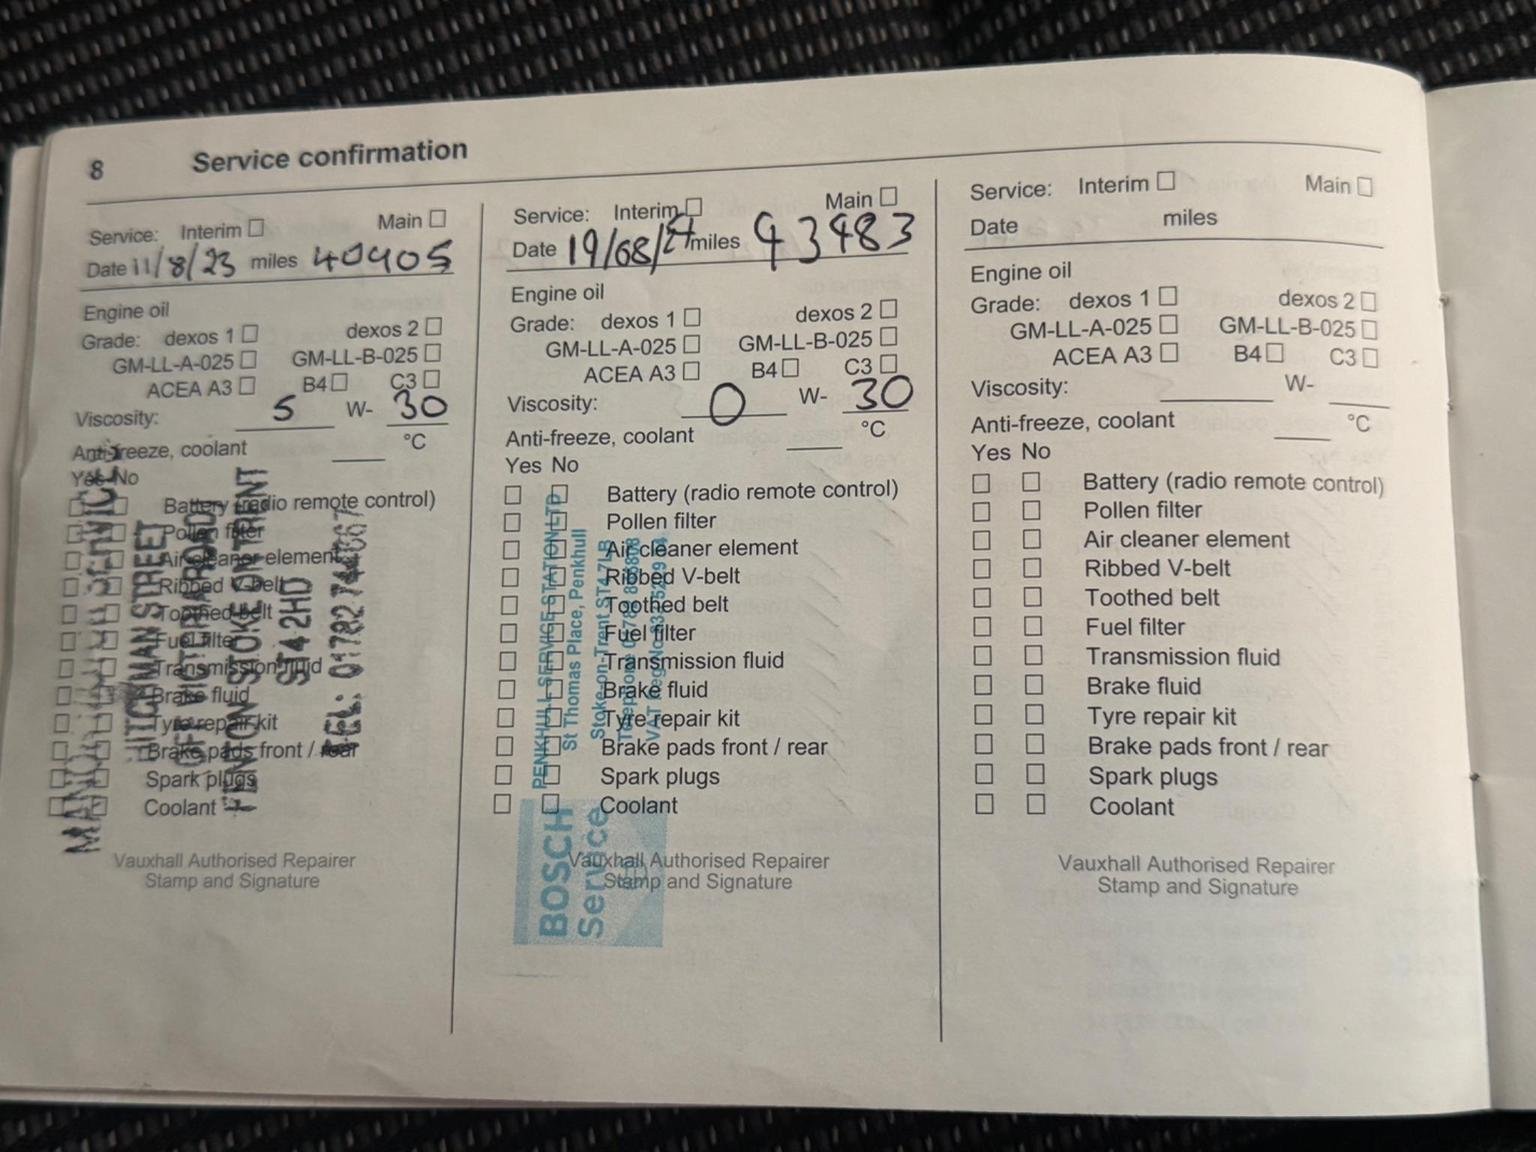 8 Service confirmation
Service: Interim □ Main □
Date 11/8/23 miles 40905
Engine oil
Grade: dexos 1 □ dexos 2 □
GM-LL-A-025 □ GM-LL-B-025 □
ACEA A3 □ B4 □ C3 □
Viscosity: 5 W- 30
Anti-freeze, coolant ____ °C
Yes No
□ □ Battery (radio remote control)
□ □ Pollen filter
□ □ Air cleaner element
□ □ Ribbed V-belt
□ □ Toothed belt
□ □ Fuel filter
□ □ Transmission fluid
□ □ Brake fluid
□ □ Tyre repair kit
□ □ Brake pads front / rear
□ □ Spark plugs
□ □ Coolant
HITCHMAN STREET
OFF VICTORIA ROAD
FENTON STOKE ON TRENT
ST4 2HD
TEL: 01782
Vauxhall Authorised Repairer
Stamp and Signature
Service: Interim □ Main □
Date 19/08/24 miles 43483
Engine oil
Grade: dexos 1 □ dexos 2 □
GM-LL-A-025 □ GM-LL-B-025 □
ACEA A3 □ B4 □ C3 □
Viscosity: 0 W- 30
Anti-freeze, coolant ____ °C
Yes No
□ □ Battery (radio remote control)
□ □ Pollen filter
□ □ Air cleaner element
□ □ Ribbed V-belt
□ □ Toothed belt
□ □ Fuel filter
□ □ Transmission fluid
□ □ Brake fluid
□ □ Tyre repair kit
□ □ Brake pads front / rear
□ □ Spark plugs
□ □ Coolant
PENKHULL SERVICE STATION LTD
St Thomas Place, Penkhull
Stoke-on-Trent ST4 7LB
Telephone
VAT Reg No
BOSCH
Service
Vauxhall Authorised Repairer
Stamp and Signature
Service: Interim □ Main □
Date miles
Engine oil
Grade: dexos 1 □ dexos 2 □
GM-LL-A-025 □ GM-LL-B-025 □
ACEA A3 □ B4 □ C3 □
Viscosity: ____ W- ____
Anti-freeze, coolant ____ °C
Yes No
□ □ Battery (radio remote control)
□ □ Pollen filter
□ □ Air cleaner element
□ □ Ribbed V-belt
□ □ Toothed belt
□ □ Fuel filter
□ □ Transmission fluid
□ □ Brake fluid
□ □ Tyre repair kit
□ □ Brake pads front / rear
□ □ Spark plugs
□ □ Coolant
Vauxhall Authorised Repairer
Stamp and Signature